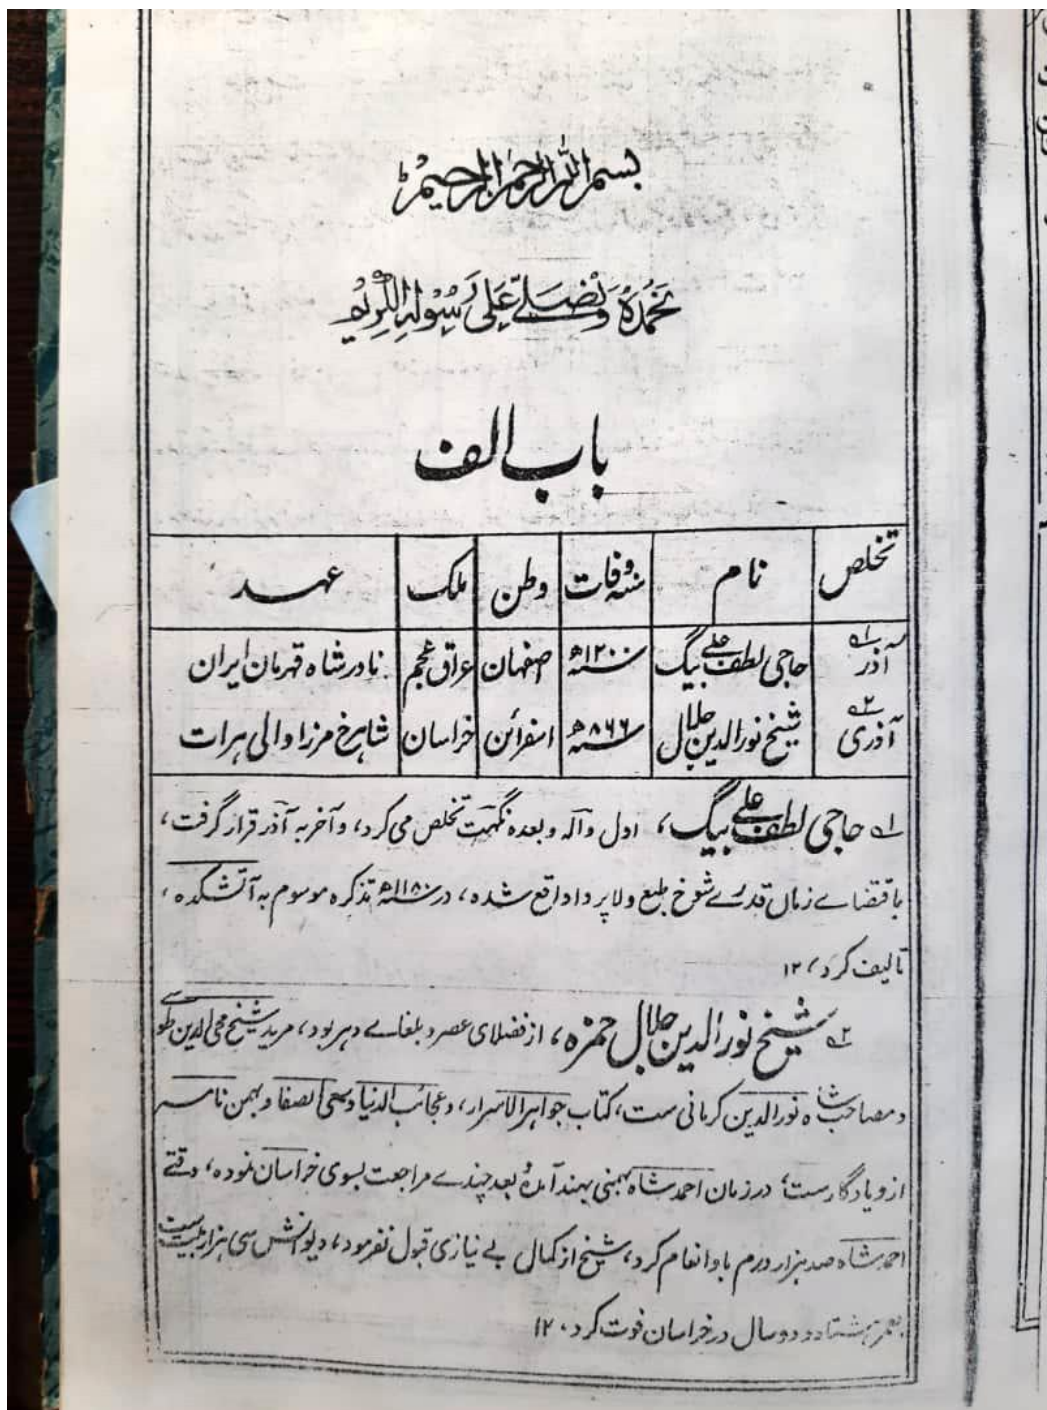 بسم الله الرحمن الرحيم
نحمده ونصلي على رسوله الكريم
باب الف
تخلص نام سنه وفات وطن ملک عهد
۱ آذر حاجی لطف علی بیگ سنه ۱۲۰۰ه اصفهان عراق عجم نادر شاه قهرمان ایران
۲ آذری شیخ نورالدین جلال سنه ۸۶۶ه اسفرائن خراسان شاهرخ مرزا والی هرات
۱ حاجی لطف علی بیگ، اول واله و بعده نگهت تخلص می کرد، و آخر به آذر قرار گرفت،
باقتضاے زمان قدرے شوخ طبع و لاپروا واقع شده، در سنه ۱۱۸۰ه تذکره موسوم به آتشکده،
تالیف کرد، ۱۲
۲ شیخ نورالدین جلال حمزه، از فضلای عصر و بلغاے دهر بود، مرید شیخ محی الدین طوسی
و مصاحب شاه نورالدین کرمانی ست، کتاب جواهر الاسرار، و عجائب الدنیا و سعی الصفا و بهمن نامه
ازو یادگارست، در زمان احمد شاه بهمنی بهند آمده بعد چندے مراجعت بسوی خراسان نموده، وقتے
احمد شاه صد هزار درم باو انعام کرد، شیخ از کمال بے نیازی قبول نفرمود، دیوانش سی هزار بیت ست
بعمر هشتاد و دو سال در خراسان فوت کرد ۱۲